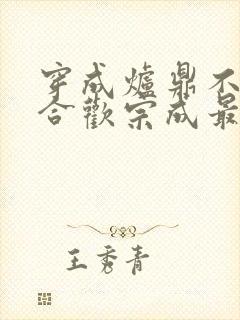 穿成爐鼎不
合歡宗成最
王秀青